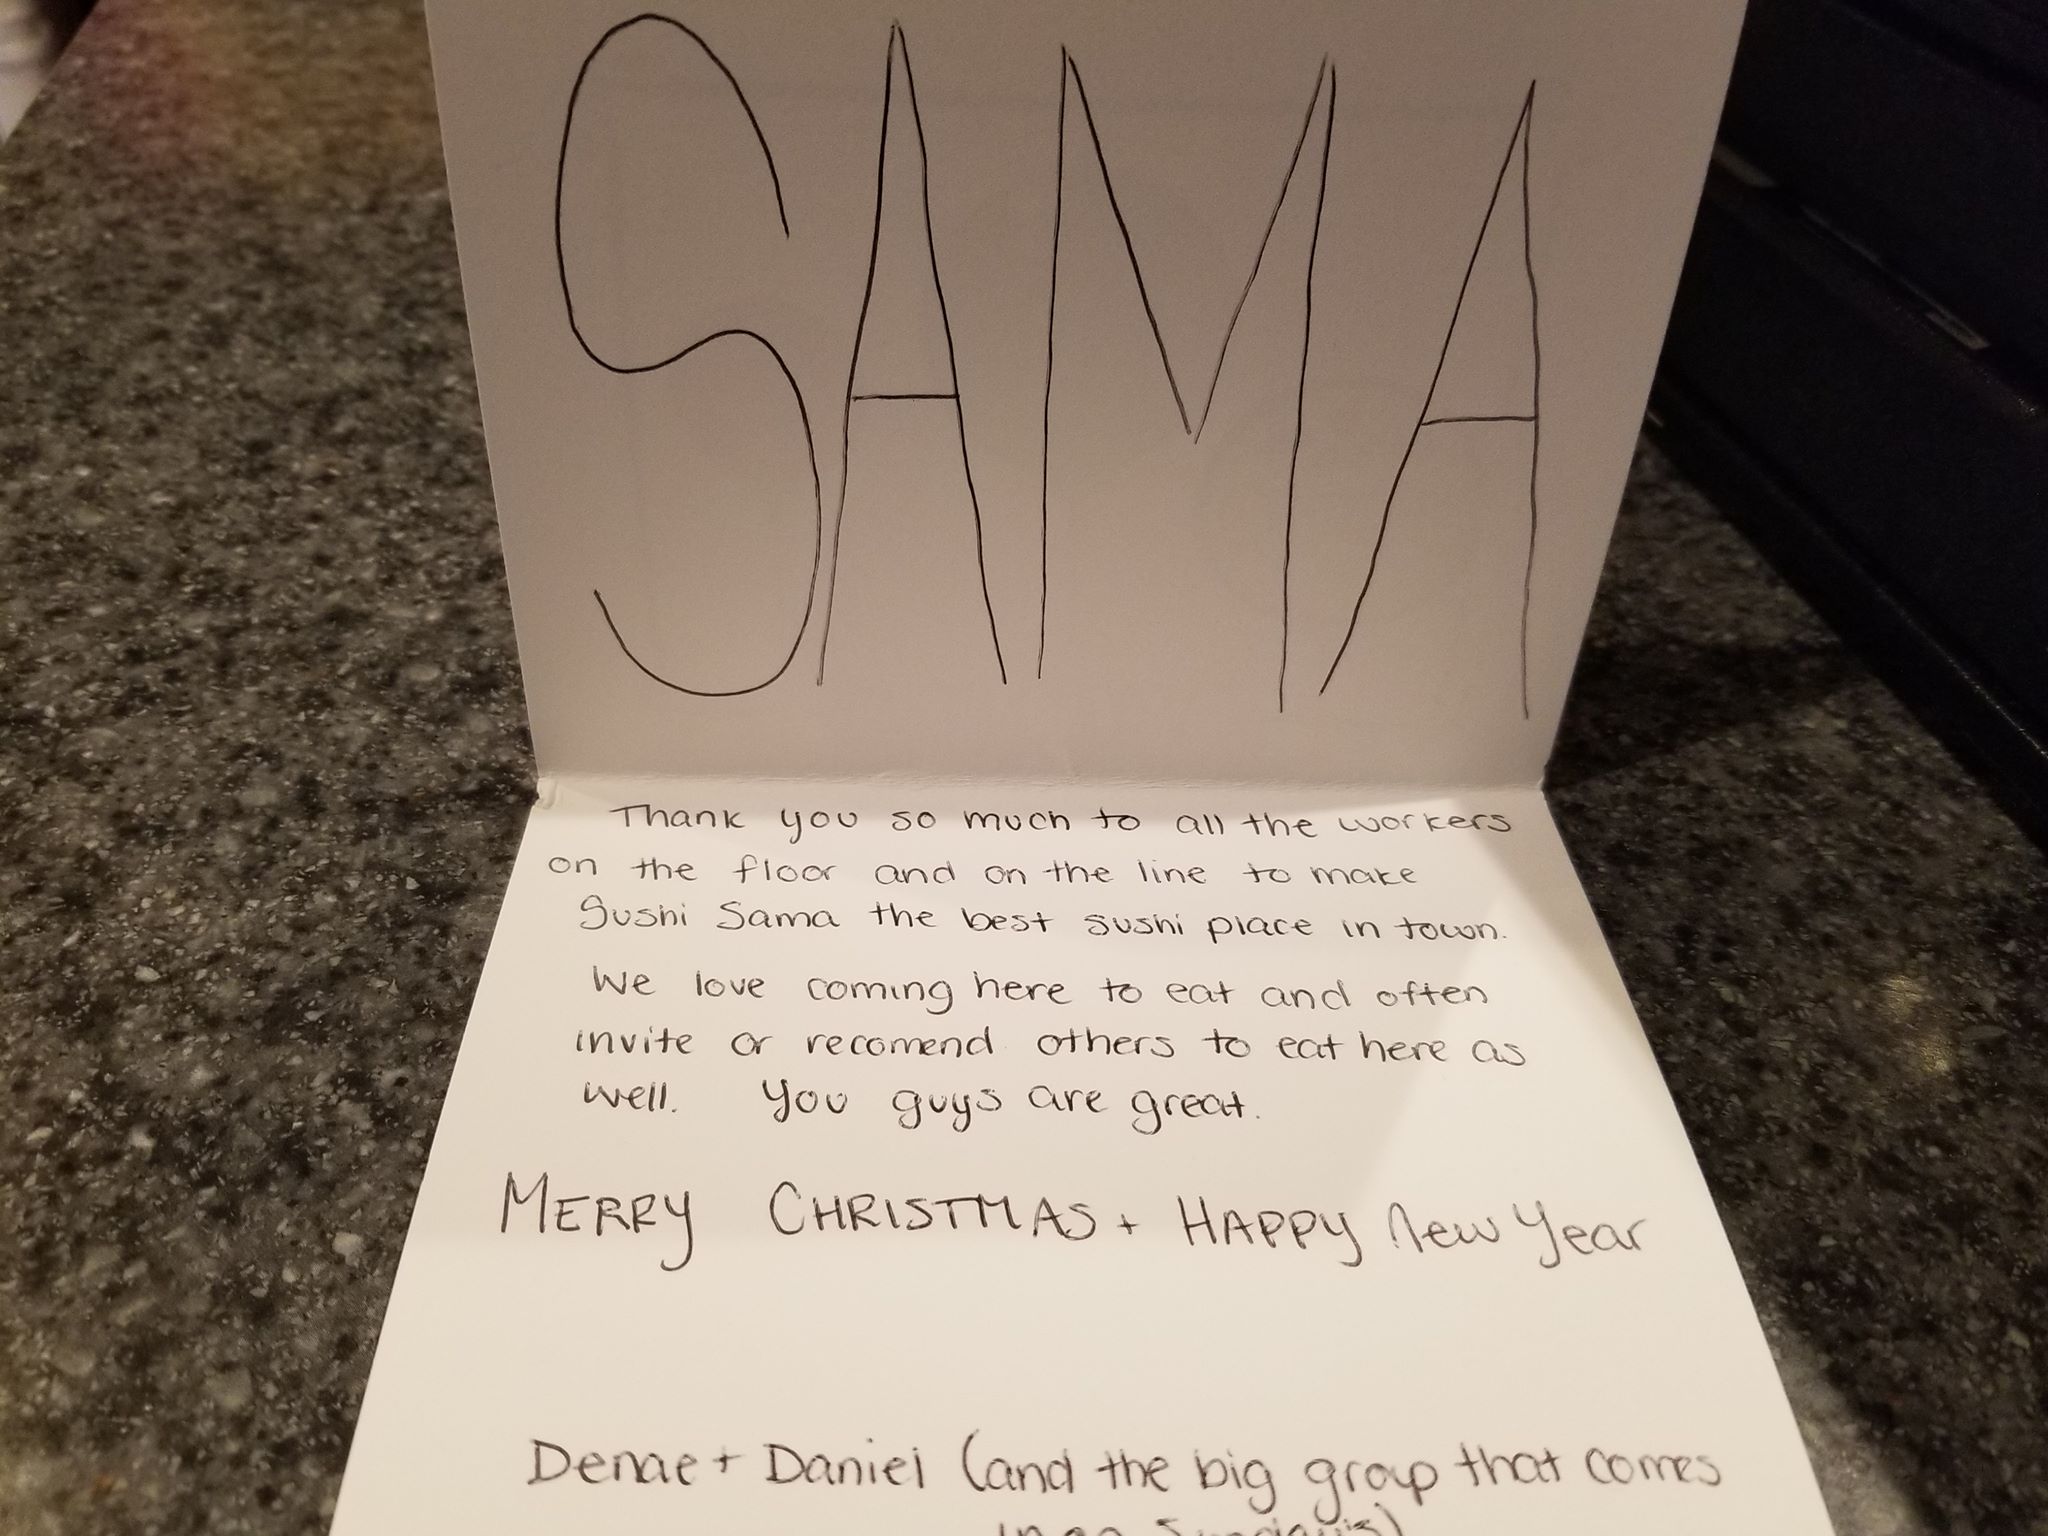 SAMA
Thank you so much to all the workers
on the floor and on the line to make
Sushi Sama the best sushi place in town.
We love coming here to eat and often
invite or recomend others to eat here as
well. You guys are great.
MERRY CHRISTMAS + HAPPY New Year
Denae + Daniel (and the big group that comes
in on Sundays)